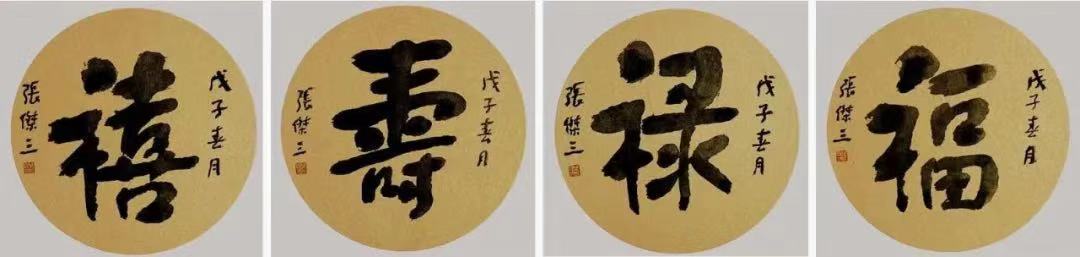 戊子春月
福
張傑三
戊子春月
禄
張傑三
戊子春月
壽
張傑三
戊子春月
禧
張傑三